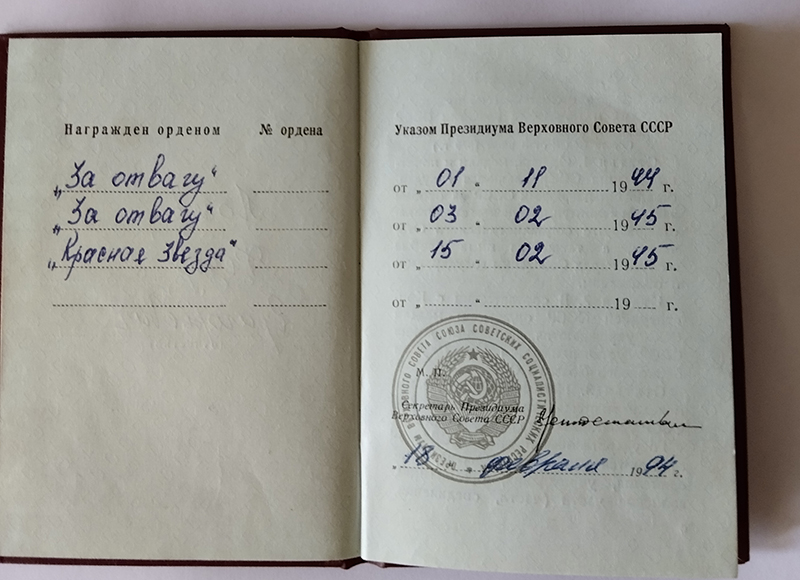 Награжден орденом № ордена
„За отвагу“
„За отвагу“
„Красная Звезда“
Указом Президиума Верховного Совета СССР
от „ 01 “ 11 1944 г.
от „ 03 “ 02 1945 г.
от „ 15 “ 02 1945 г.
от „ “ 19 г.
М. П.
Секретарь Президиума
Верховного Совета СССР
„ 18 “ февраля 1994 г.
ВЕРХОВНОГО СОВЕТА СОЮЗА СОВЕТСКИХ СОЦИАЛИСТИЧЕСКИХ